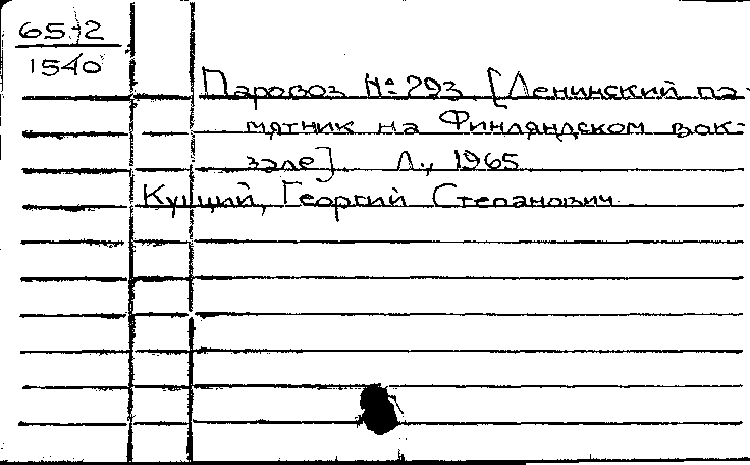 65-2
1540
Паровоз № 293 [Ленинский па-
мятник на Финляндском вок-
зале] Л., 1965
Куцций, Георгий Степанович